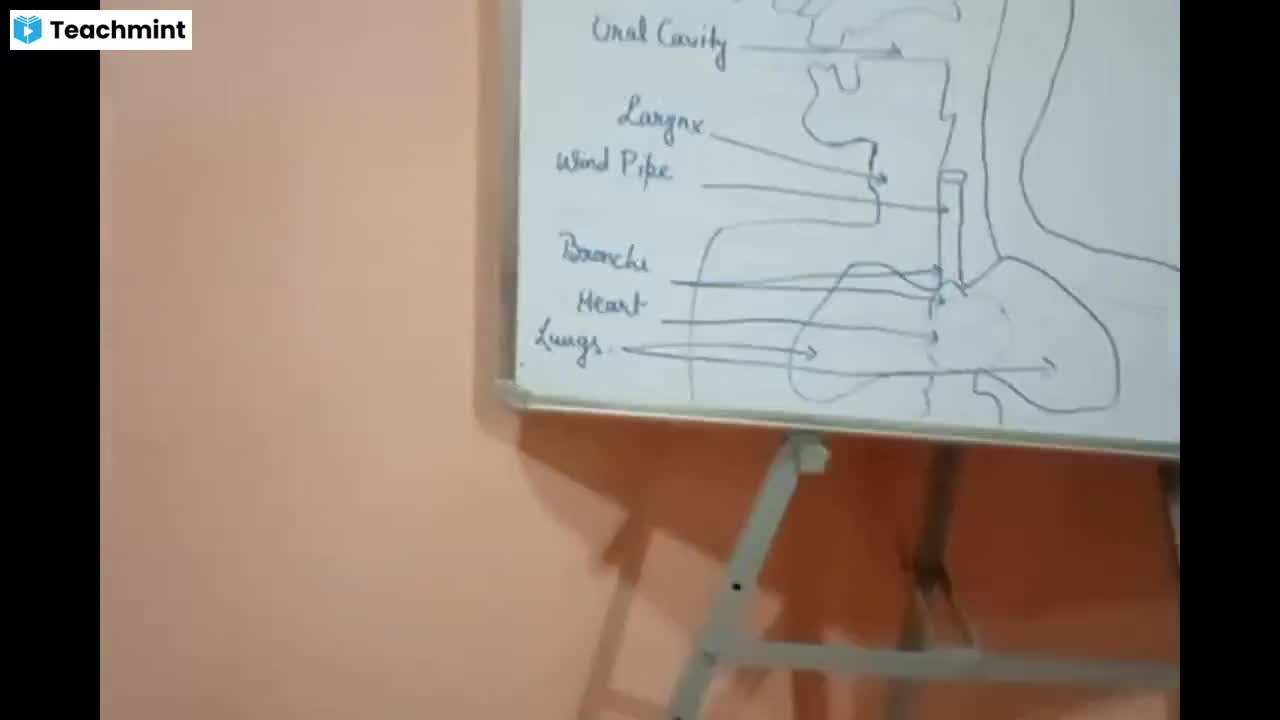 Teachmint
Oral Cavity
Larynx
Wind Pipe
Bronchi
Heart
Lungs